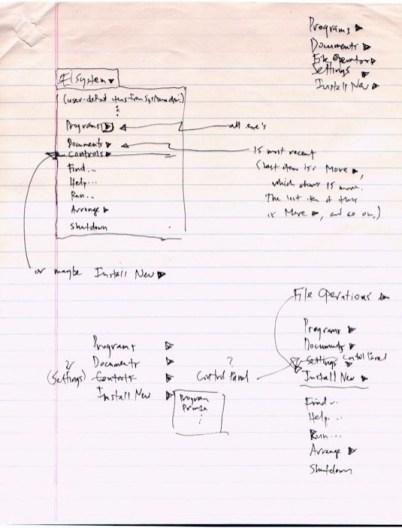 Programs ▶
Documents ▶
File Operations ▶
Settings ▶
Install New ▶
System ▾
(user-defined items from
⋮
Programs ▶
all exe's
Documents ▶
15 most recent
Controls ▶
(last item is More ▶,
Find...
which shows 15 more.
Help...
The last item of this
Run...
is More ▶, and so on.)
Arrange ▶
Shutdown
or maybe Install New ▶
File Operations
Programs ▶
Documents ▶
Settings Control Panel
Install New ▶
Find...
Help...
Run...
Arrange ▶
Shutdown
Programs ▶
? Documents ▶
(Settings) Controls ▶
Install New ▶
?
Control Panel
Program
Printer
⋮